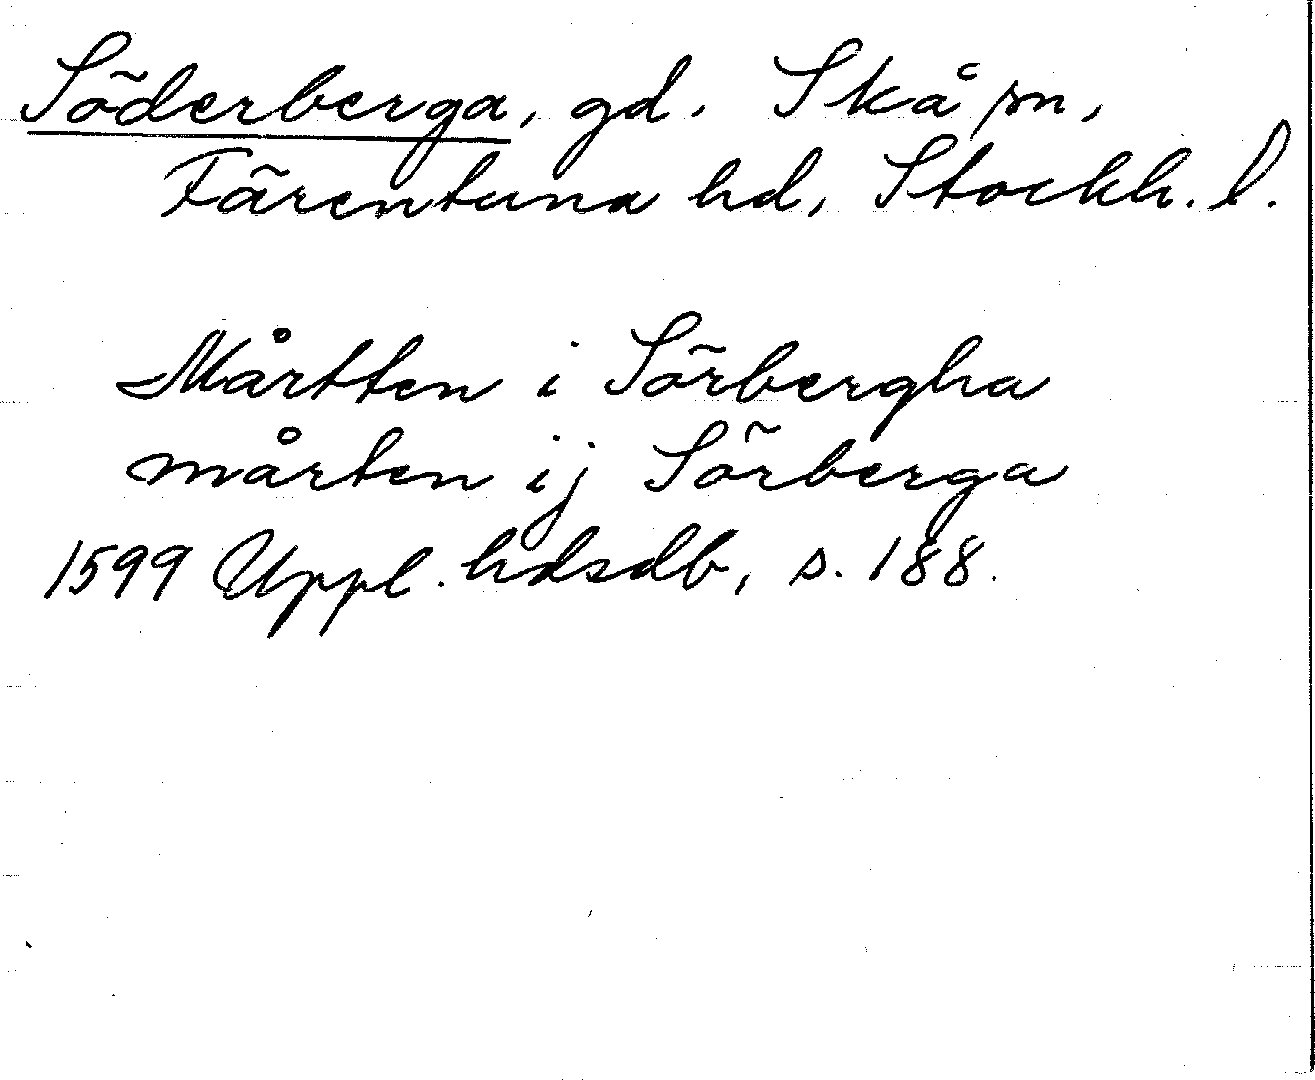 Söderberga, gd. Skå sn,
Färentuna hd, Stockh. l.
Mårtten i Sörbergha
mårten ij Sörberga
1599 Uppl. hdsdb, s. 188.